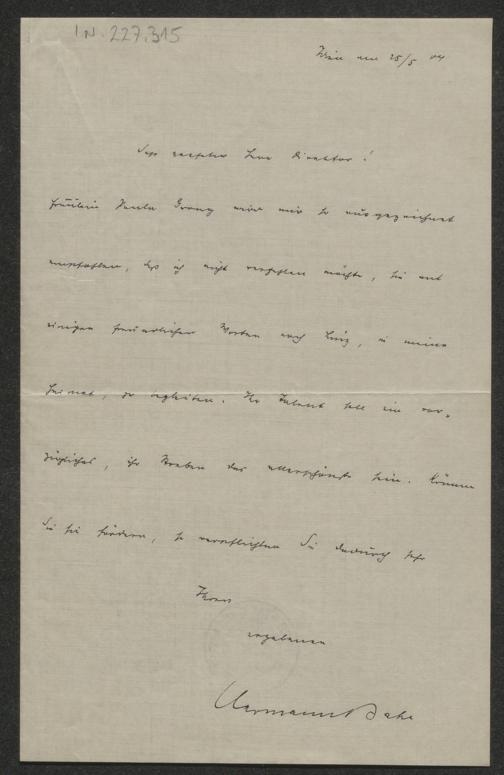 IN. 227.315
Wien am 25/5 04
Sehr geehrter Herr Direktor!
Fräulein Paula wird mir so ausgezeichnet
empfohlen, daß ich nicht verfehlen möchte, sie mit
einigen freundlichen Worten nach Linz, in meine
Heimat, zu begleiten. Ihr Talent soll ein vor-
zügliches, ihr Streben das allerschönste sein. Können
Sie sie fördern, so verpflichten Sie dadurch sehr
Ihren
ergebenen
Hermann Bahr